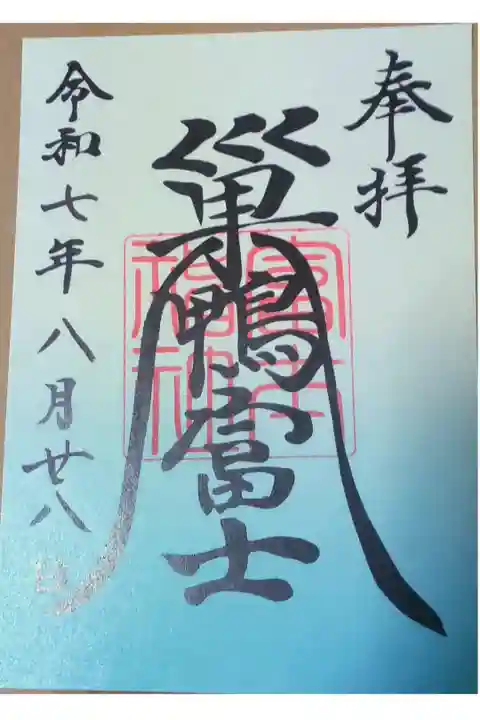 奉拝
巣鴨富士
令和七年八月廿八日